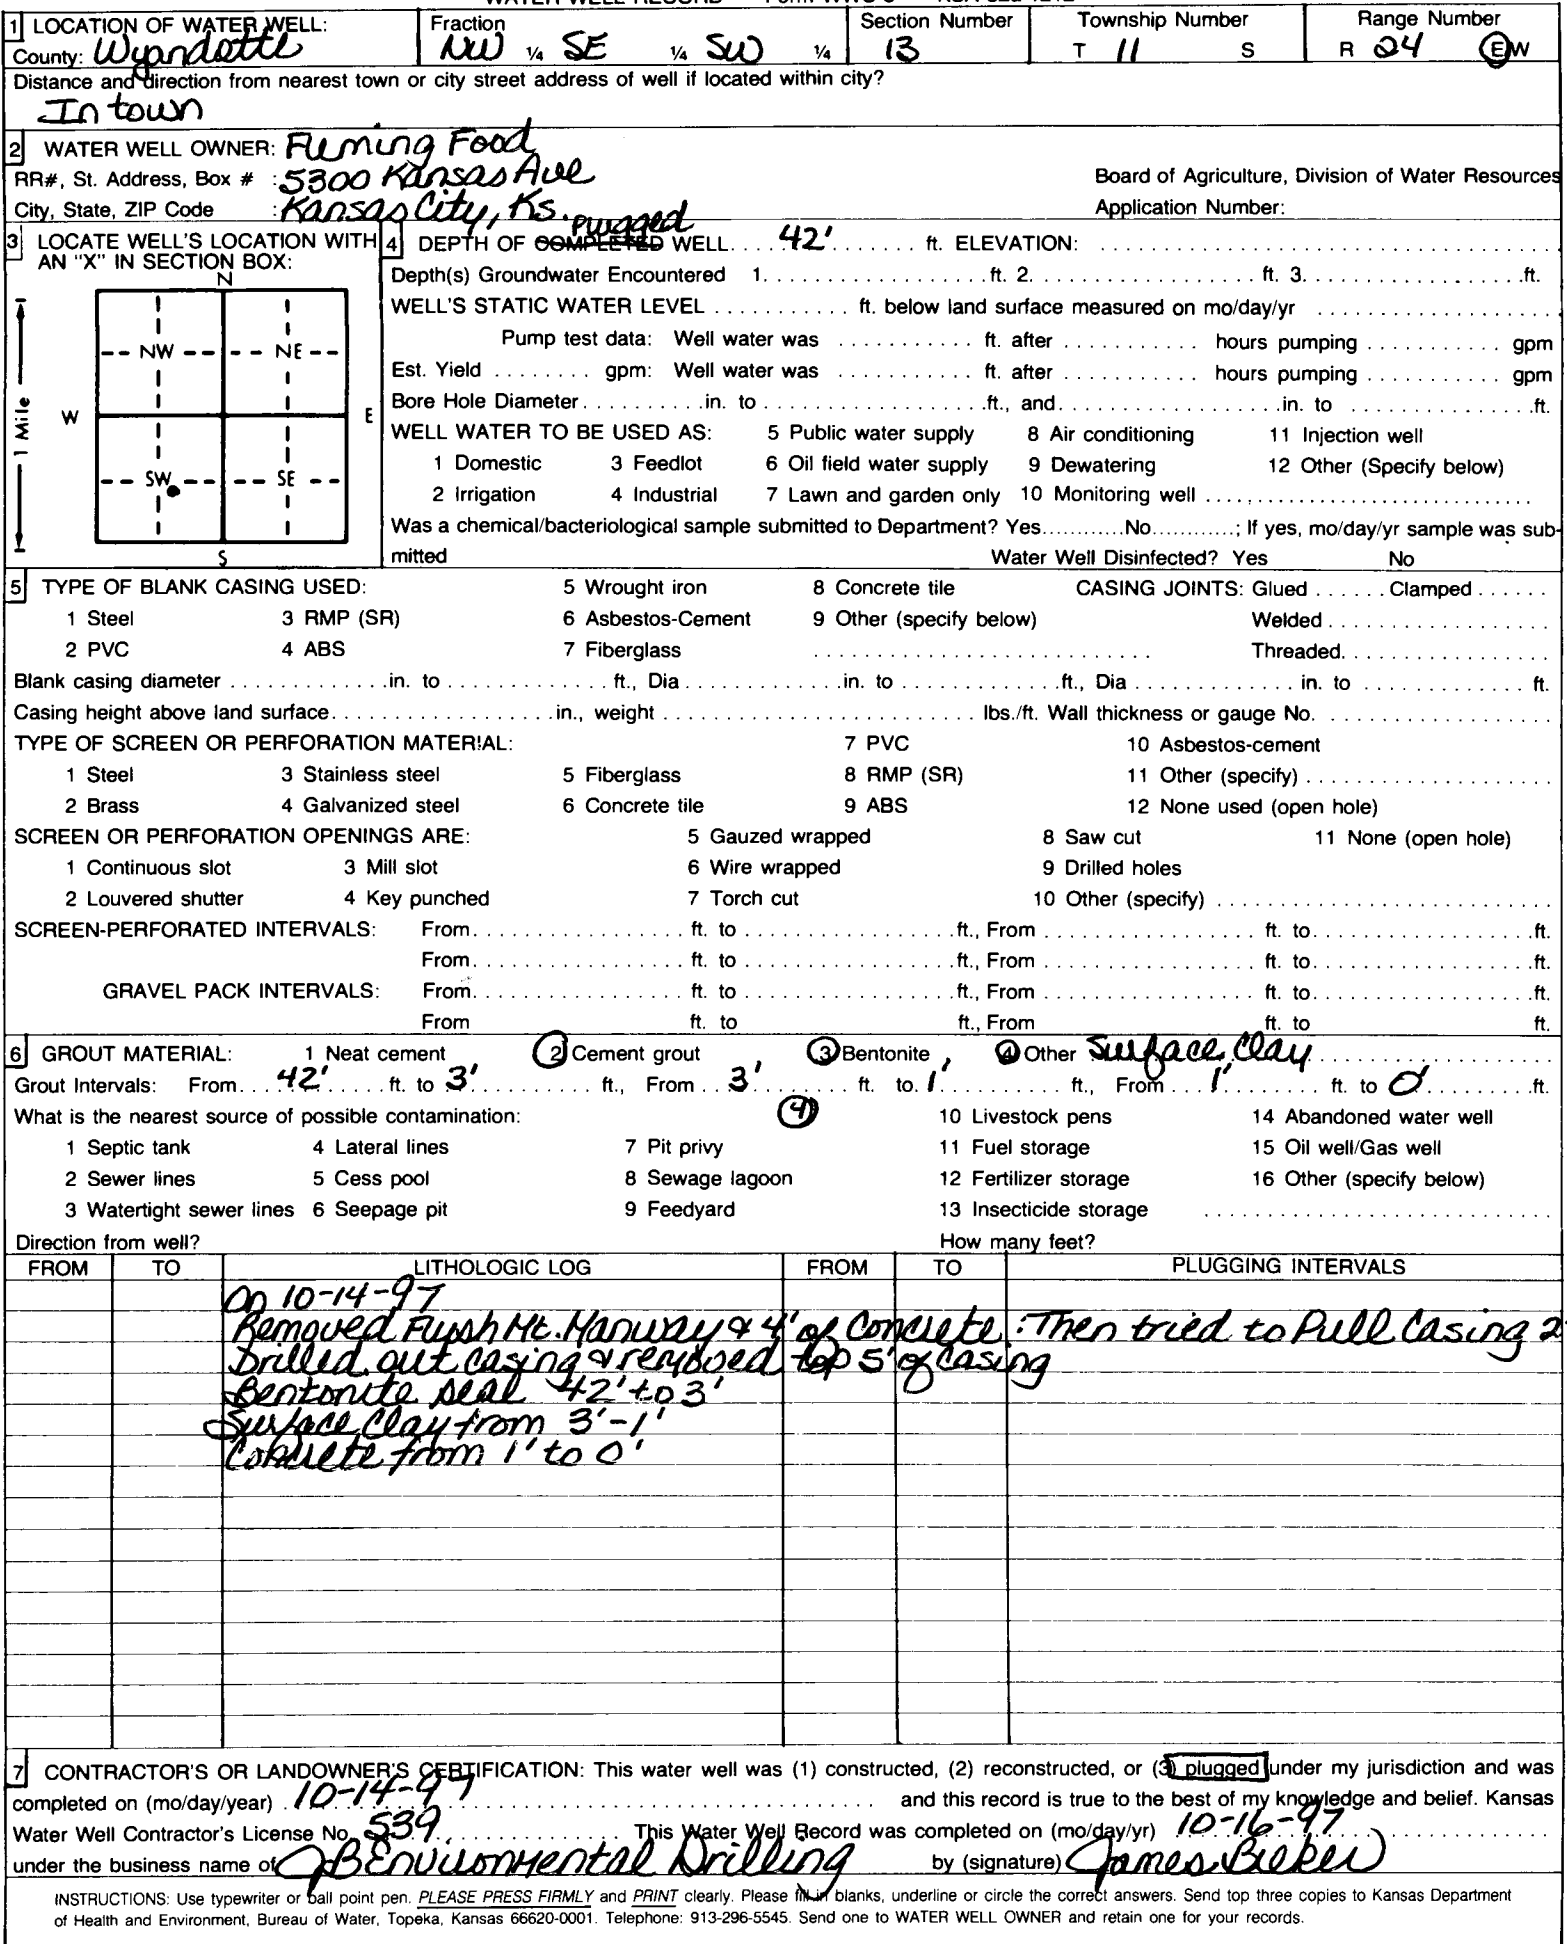 1 LOCATION OF WATER WELL: Fraction Section Number Township Number Range Number
County: Wyandotte NW ¼ SE ¼ SW ¼ 13 T 11 S R 24 EW
Distance and direction from nearest town or city street address of well if located within city?
In town
2 WATER WELL OWNER: Fleming Food
RR#, St. Address, Box # : 5300 Kansas Ave Board of Agriculture, Division of Water Resources
City, State, ZIP Code : Kansas City, Ks. Application Number:
plugged
3 LOCATE WELL'S LOCATION WITH AN "X" IN SECTION BOX:
N
NW NE
W E
SW SE
S
1 Mile
4 DEPTH OF COMPLETED WELL.... 42' ........ ft. ELEVATION: ........
Depth(s) Groundwater Encountered 1. ........ ft. 2. ........ ft. 3. ........ ft.
WELL'S STATIC WATER LEVEL ........ ft. below land surface measured on mo/day/yr ........
Pump test data: Well water was ........ ft. after ........ hours pumping ........ gpm
Est. Yield ........ gpm: Well water was ........ ft. after ........ hours pumping ........ gpm
Bore Hole Diameter ........ in. to ........ ft., and ........ in. to ........ ft.
WELL WATER TO BE USED AS: 5 Public water supply 8 Air conditioning 11 Injection well
1 Domestic 3 Feedlot 6 Oil field water supply 9 Dewatering 12 Other (Specify below)
2 Irrigation 4 Industrial 7 Lawn and garden only 10 Monitoring well ........
Was a chemical/bacteriological sample submitted to Department? Yes........No........; If yes, mo/day/yr sample was sub-
mitted Water Well Disinfected? Yes No
5 TYPE OF BLANK CASING USED: 5 Wrought iron 8 Concrete tile CASING JOINTS: Glued ...... Clamped ......
1 Steel 3 RMP (SR) 6 Asbestos-Cement 9 Other (specify below) Welded ........
2 PVC 4 ABS 7 Fiberglass ........ Threaded ........
Blank casing diameter ........ in. to ........ ft., Dia ........ in. to ........ ft., Dia ........ in. to ........ ft.
Casing height above land surface ........ in., weight ........ lbs./ft. Wall thickness or gauge No. ........
TYPE OF SCREEN OR PERFORATION MATERIAL: 7 PVC 10 Asbestos-cement
1 Steel 3 Stainless steel 5 Fiberglass 8 RMP (SR) 11 Other (specify) ........
2 Brass 4 Galvanized steel 6 Concrete tile 9 ABS 12 None used (open hole)
SCREEN OR PERFORATION OPENINGS ARE: 5 Gauzed wrapped 8 Saw cut 11 None (open hole)
1 Continuous slot 3 Mill slot 6 Wire wrapped 9 Drilled holes
2 Louvered shutter 4 Key punched 7 Torch cut 10 Other (specify) ........
SCREEN-PERFORATED INTERVALS: From ........ ft. to ........ ft., From ........ ft. to ........ ft.
From ........ ft. to ........ ft., From ........ ft. to ........ ft.
GRAVEL PACK INTERVALS: From ........ ft. to ........ ft., From ........ ft. to ........ ft.
From ft. to ft., From ft. to ft.
6 GROUT MATERIAL: 1 Neat cement 2 Cement grout 3 Bentonite 4 Other Surface Clay
Grout Intervals: From... 42' .... ft. to 3' ........ ft., From .. 3' ........ ft. to 1' ........ ft., From .. 1' ........ ft. to 0' ........ ft.
What is the nearest source of possible contamination: 4 10 Livestock pens 14 Abandoned water well
1 Septic tank 4 Lateral lines 7 Pit privy 11 Fuel storage 15 Oil well/Gas well
2 Sewer lines 5 Cess pool 8 Sewage lagoon 12 Fertilizer storage 16 Other (specify below)
3 Watertight sewer lines 6 Seepage pit 9 Feedyard 13 Insecticide storage ........
Direction from well? How many feet?
FROM TO LITHOLOGIC LOG FROM TO PLUGGING INTERVALS
On 10-14-97
Removed Flush Mt. Manway & 4' of Concrete. Then tried to Pull Casing 2
Drilled out casing & removed top 5' of Casing
Bentonite seal 42' to 3'
Surface Clay from 3'-1'
Concrete from 1' to 0'
7 CONTRACTOR'S OR LANDOWNER'S CERTIFICATION: This water well was (1) constructed, (2) reconstructed, or (3) plugged under my jurisdiction and was
completed on (mo/day/year) 10-14-97 ........ and this record is true to the best of my knowledge and belief. Kansas
Water Well Contractor's License No. 539 ........ This Water Well Record was completed on (mo/day/yr) 10-16-97 ........
under the business name of JB Environmental Drilling by (signature) James Bieker
INSTRUCTIONS: Use typewriter or ball point pen. PLEASE PRESS FIRMLY and PRINT clearly. Please fill in blanks, underline or circle the correct answers. Send top three copies to Kansas Department
of Health and Environment, Bureau of Water, Topeka, Kansas 66620-0001. Telephone: 913-296-5545. Send one to WATER WELL OWNER and retain one for your records.